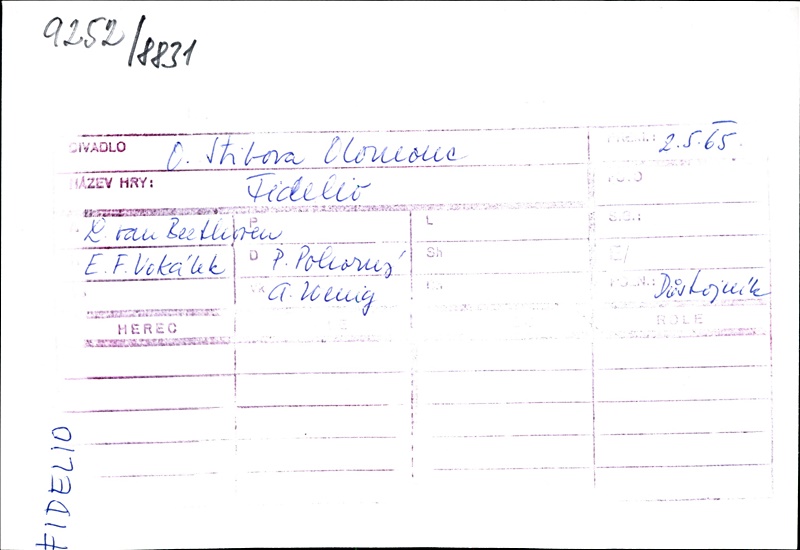 9252/8831
DIVADLO O. Stibora Olomouc
2.5.65.
NÁZEV HRY: Fidelio
FOTO
L. van Beethoven P L
E. F. Vokálek D P. Pokorný Sh
A. Wenig
Důstojník
HEREC ROLE
FIDELIO